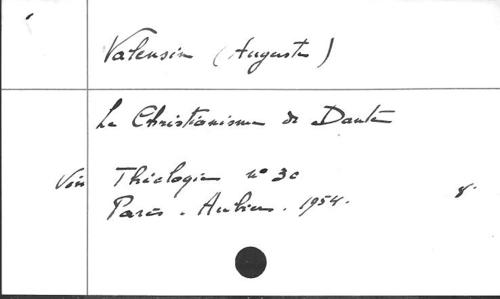 Valensin (Auguste)
Le Christianisme de Dante
Voir Théologie n° 30
Paris. Aubier. 1954. 8°